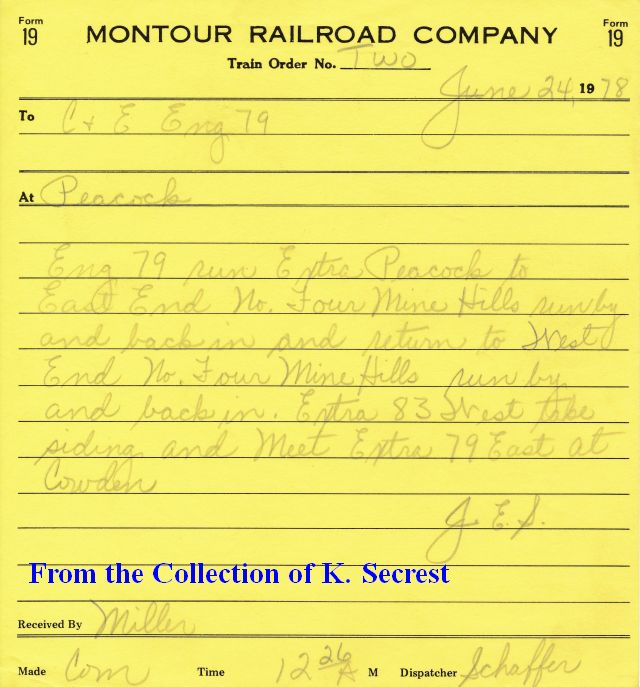 Form 19
MONTOUR RAILROAD COMPANY
Form 19
Train Order No. Two
June 24, 1978
To C & E Eng 79
At Peacock
Eng 79 run Extra Peacock to
East End No. Four Mine Hills run by
and back in and return to West
End No. Four Mine Hills run by
and back in. Extra 83 West take
siding and Meet Extra 79 East at
Cowden
J. E. S.
From the Collection of K. Secrest
Received By Miller
Made Com Time 12 26 A M Dispatcher Schaffer